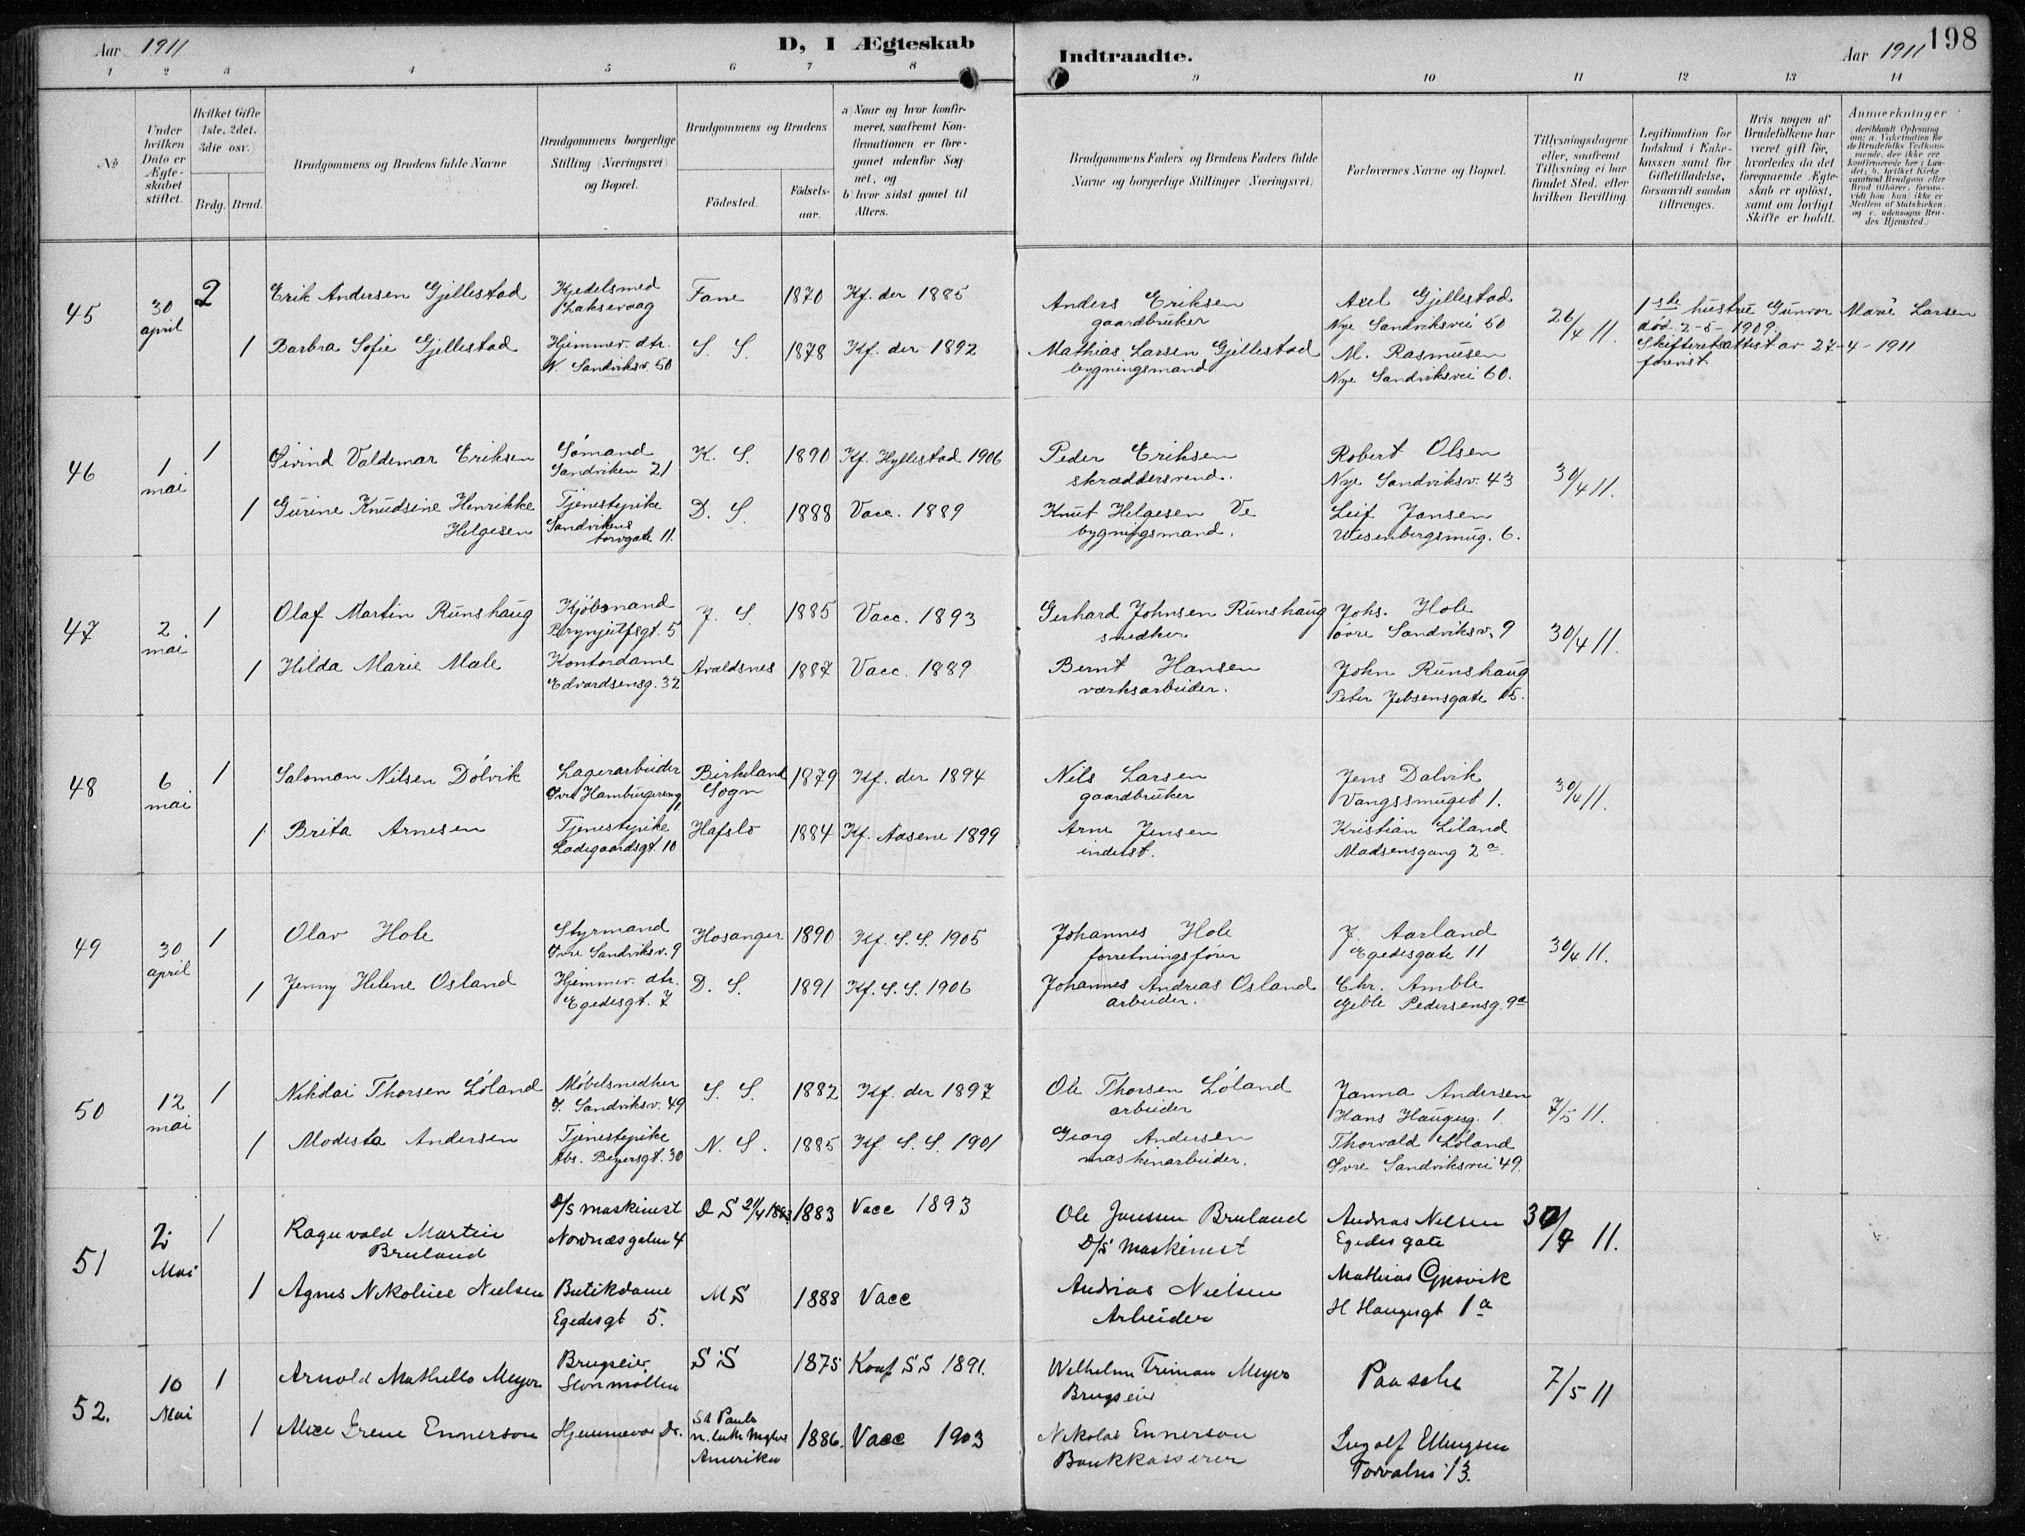 Aar 1911
D, I Ægteskab
Indtraadte.
Aar 1911
198
1 2 3 4 5 6 7 8 9 10 11 12 13 14
No
Under hvilken Dato er Ægteskabet stiftet.
Hvilket Gifte (1ste, 2det, 3die osv.)
Brdg. Brud.
Brudgommens og Brudens fulde Navne
Brudgommens borgerlige Stilling (Næringsvei) og Bopæl.
Brudgommens og Brudens
Födested.
Födselsaar.
a) Naar og hvor konfirmeret, saafremt Konfirmationen er foregaaet udenfor Sognet, og
b) hvor sidst gaaet til Alters.
Brudgommens Faders og Brudens Faders fulde Navne og borgerlige Stillinger (Næringsvei)
Forlovernes Navne og Bopæl.
Tillysningsdagene eller, saafremt Tillysning ei har fundet Sted, efter hvilken Bevilling.
Legitimation for Indskud i Enkekassen samt for Giftetilladelse, forsaavidt saadan tiltrænges.
Hvis nogen af Brudefolkene har været gift før, hvorledes da det foregaaende Ægteskab er oplöst, samt om lovligt Skifte er holdt.
Anmærkninger
45
30 april
2
Erik Andersen Gjellestad
Kjedelsmed Laksevaag
Fane
1870
Kf. der 1885
Anders Eriksen
gaardbruker
Axel Gjellestad
Nye Sandviksvei 50
26/4 11.
1ste hustru Gunvor Marie Larsen
død 2-5-1909.
Skifteretsattest av 27-4-1911
forevist.
1
Barbra Sofie Gjellestad
Hjemmev. dtr.
N. Sandviksv. 50
S. S.
1878
Kf. der 1892
Mathias Larsen Gjellestad
bygningsmand
M. Rasmusen
Nye Sandviksvei 60.
46
1 mai
1
Eivind Valdemar Eriksen
Sømand
Sandviken 21
K. S.
1890
Kf. Hyllestad 1906
Peder Eriksen
skræddersvend.
Robert Olsen
Nye Sandviksv. 43
30/4 11.
1
Gurine Knudsine Henrikke
Helgesen
Tjenestepike
Sandvikens
torvgate 11.
D. S.
1888
Vacc. 1889
Knut Helgesen Ve
bygningsmand.
Leif Jansen
Wesenbergsmug. 6.
47
2. mai
1
Olaf Martin Runshaug
Kjøbmand
Brynjulfsgt. 5
J. S.
1885
Vacc. 1893
Gerhard Johnsen Runshaug
snedker.
Johs. Hole
øvre Sandviksv. 9
30/4 11.
1
Hilda Marie Male
Kontordame
Edvardsensg. 32
Avaldsnes
1887
Vacc. 1889
Bernt Hansen
værksarbeider.
John Runshaug
Peter Jebsensgate 15.
48
6 mai
1
Salomon Nilsen Dólvik
Lagerarbeider
Birkeland
Sogn
1879
Kf. der 1894
Nils Larsen
gaardbruker
Jens Dalvik
Vangssmuget 1.
30/4 11.
1
Brita Arnesen
Tjenestepike
Ladegaardsgt. 10
Hafslo
1884
Kf. Aasene 1899
Arne Jensen
inderst.
Kristian Liland
Madsensgang 2 a.
49
30 april
1
Olav Hole
Styrmand
Øvre Sandviksv. 9
Hosanger
1890
Kf. S. S. 1905
Johannes Hole
forretningsfører
J. Aarland
Egedesgate 11
30/4 11.
1
Jenny Helene Osland
Hjemmev. dtr.
Egedesgt. 7
D. S.
1891
Kf. S. S. 1906
Johannes Andreas Osland
arbeider.
Chr. Amble
Geble Pedersensg. 9a
50
12 mai
1
Nikolai Thorsen Lóland
Møbelsnedker
Sandviksv. 49
S. S.
1882
Kf. der 1897
Ole Thorsen Lóland
arbeider
Janna Andersen
Hans Haugesg. 1.
7/5 11.
1
Modesta Andersen
Tjenestepike
Abs. Beyersgt. 30
N. S.
1885
Kf S. S. 1901
Georg Andersen
maskinarbeider.
Thorvald Lóland
Øvre Sandviksvei 49.
51
2 Mai
1
Ragnvald Martin
Bruland
D/S maskinist
Nordnæsgaten 4
D S 21/4 1883
1883
Vacc 1893
Ole Janssen Bruland
D/S Maskinist
Andreas Nilsen
Egedesgate
30/4 11.
1
Agnes Nikoline Nielsen
Butikdame
Egedesgt 5.
M S
1888
Vacc
Andreas Nielsen
Arbeider
Mathias Gjesvik
H Haugesgt 1a
52.
10 Mai
1
Arnold Mathello Meyer
Brugseier
Storemøllen
S S
1875
Konf S S 1891.
Wilhelm Friman Meyer
Brugseier
Paasche
7/5 11
1
Alice Irene Ennerson
Hjemmevær. Dr.
St Paul
Amerika
1886.
Vacc 1903
Nikolas Ennerson
Bankkasserer
Ingolf Ellingsen
Torvalm 13.